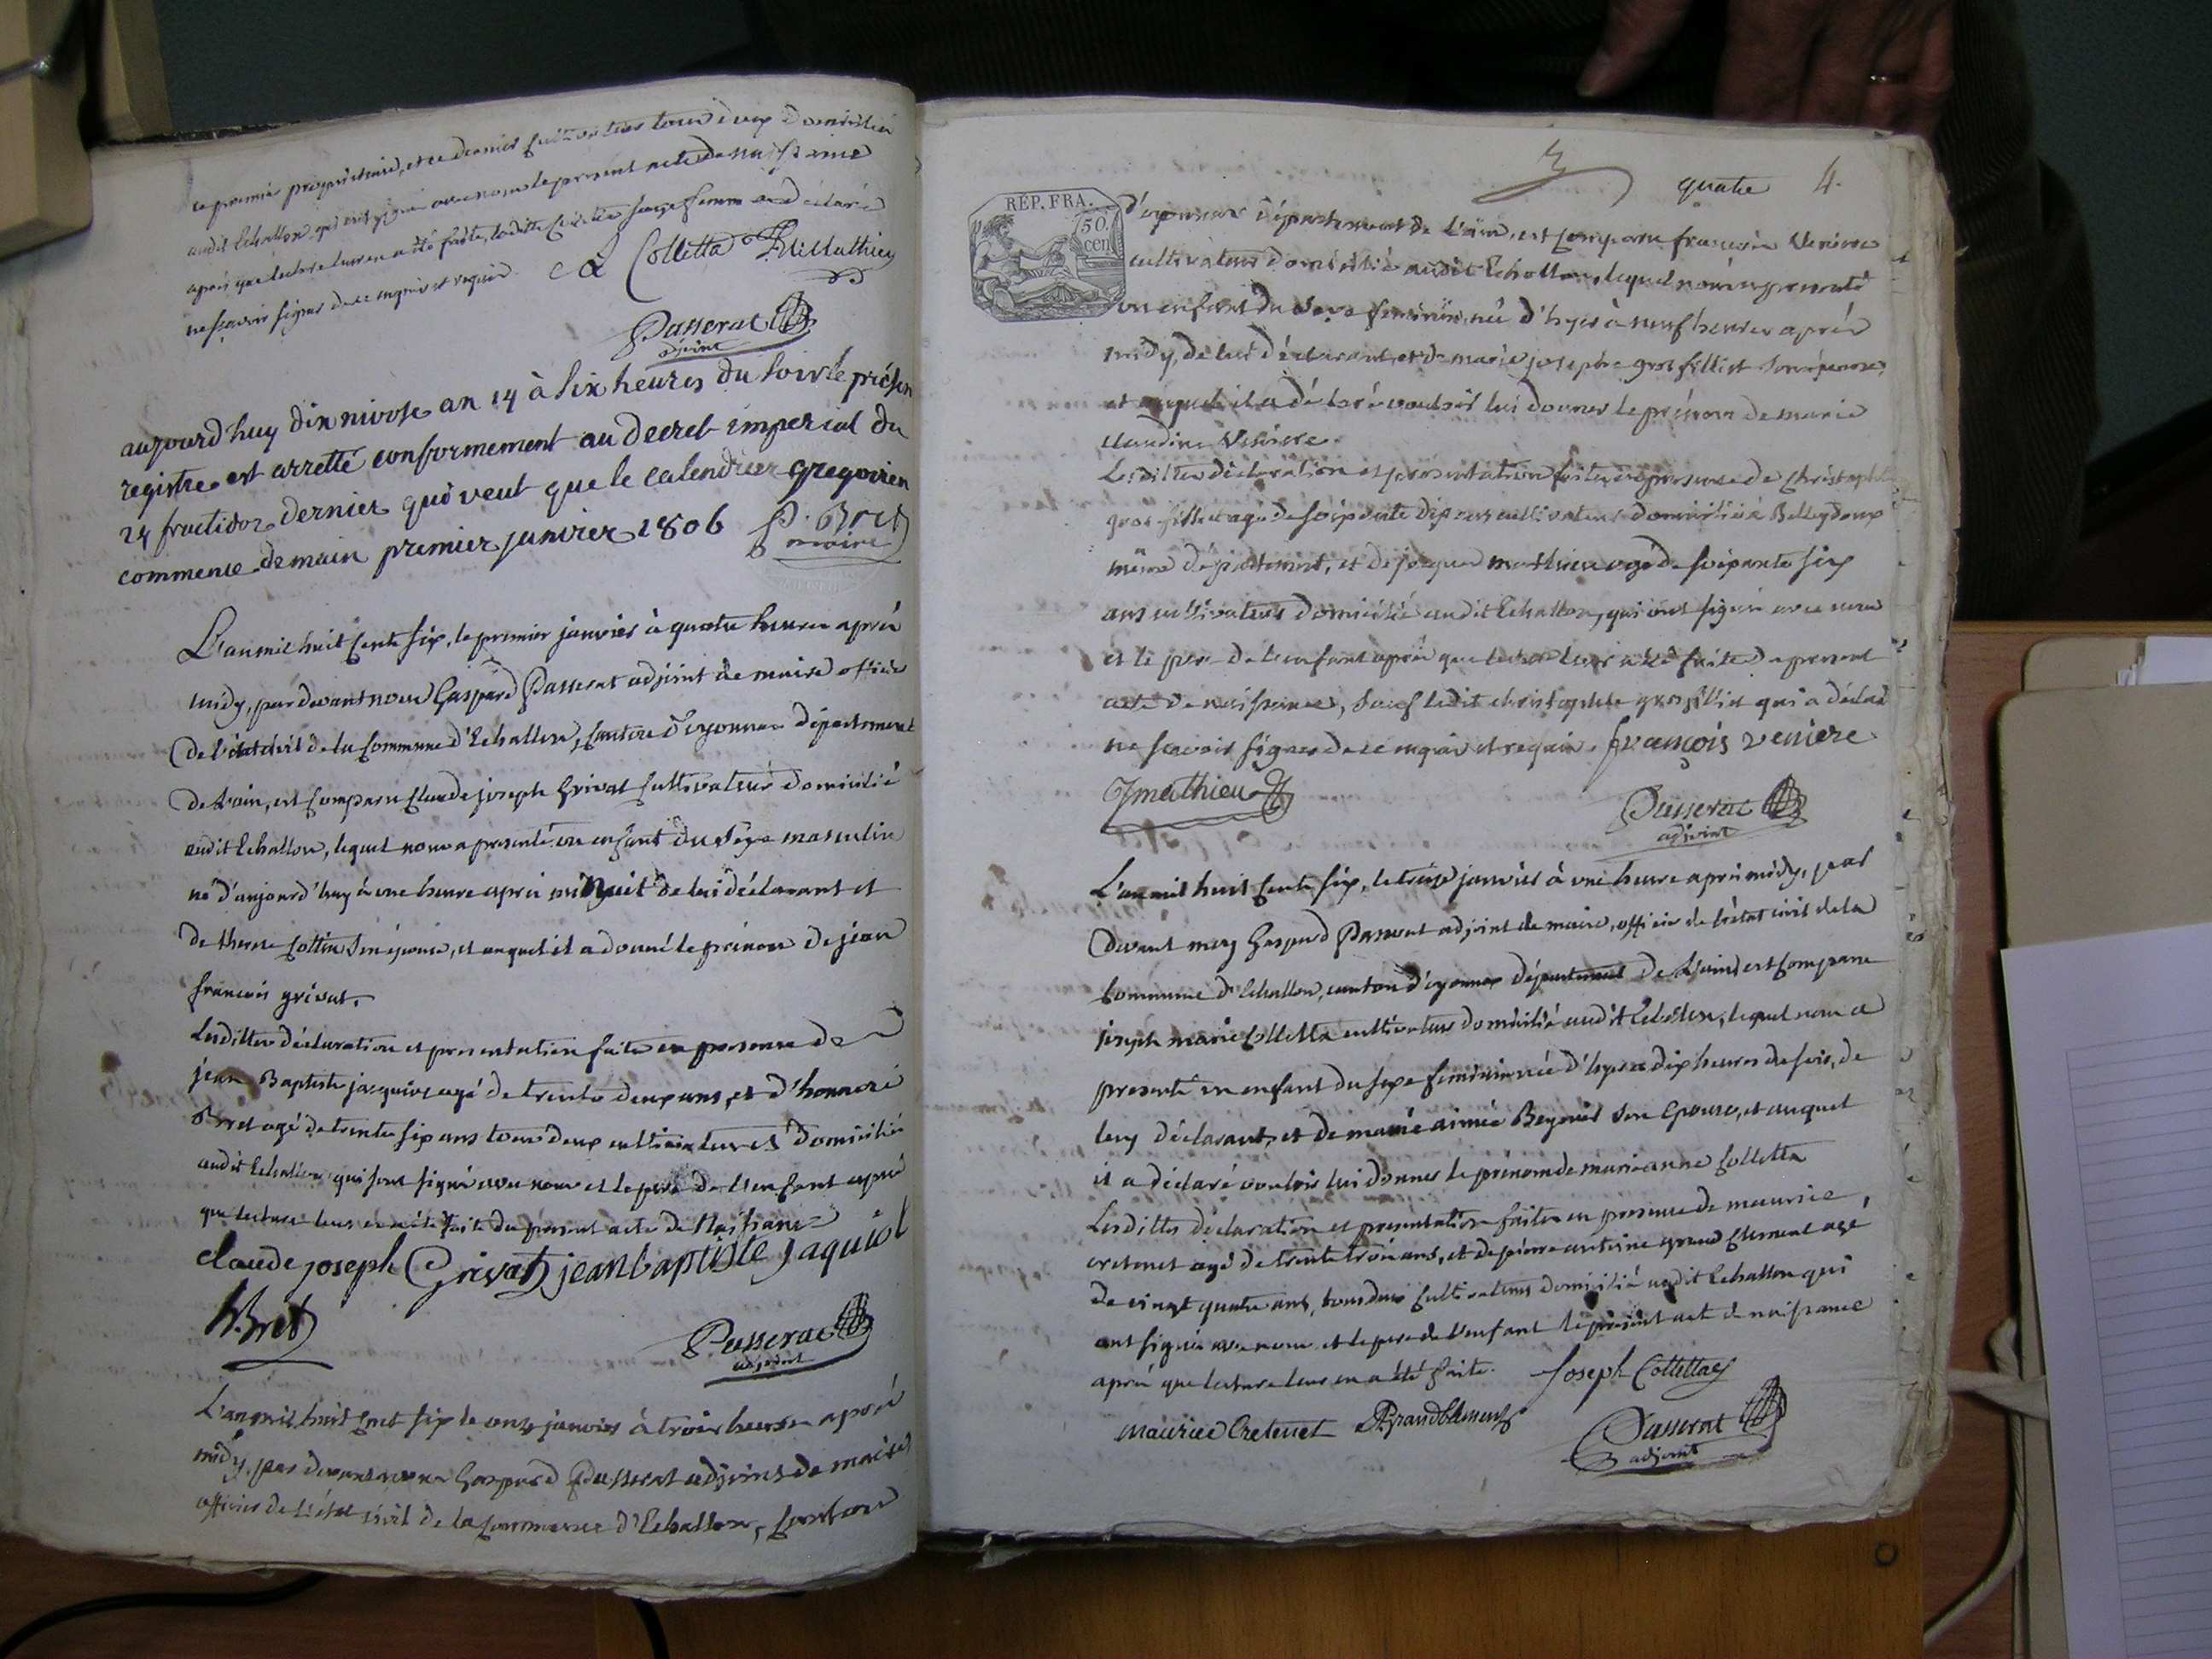 ce premier propriétaire, et ce dernier cultivateur tous deux domiciliés
audit Echallon, qui ont signé avec nous le present acte de naissance
après que lecture leur en a été faite, laditte sage femme a déclaré
ne sçavoir signer de ce enquis et requis. C L Colletta Mathieu
Passerat
adjoint
aujourd'huy dix nivose an 14 à six heures du soir le présent
registre est arretté conformement au decret imperial du
24 fructidor dernier qui veut que le calendrier gregorien
commence demain premier janvier 1806 P. Bret
maire
L'an mil huit cents six, le premier janvier à quatre heures après
midy, par devant nous Gaspard Passerat adjoint de maire officier
de l'état civil de la commune d'Echallon, canton d'oyonnax département
de l'ain, est comparu Claude joseph Grivat cultivateur domicilié
audit Echallon, lequel nous a presenté un enfant du sexe masculin
né d'aujourd'huy à une heure après minuit de lui déclarant et
de therese Cottin son épouse, et auquel il a donné le prénom de jean
francois grivat.
Lesdittes déclaration et presentation faites en presence de
jean Baptiste jacquiot agé de trente deux ans, et d'honnoré
Bret agé de trente six ans tous deux cultivateurs domiciliés
audit Echallon qui sont signé avec nous et le père de l'enfant après
que lecture leur en a été faite du present acte de Naissance
claude joseph Grivat jean baptiste jaquiot
h. Bret Passerat
adjoint
L'an mil huit cent six le onze janvier à trois heures après
midy, par devant nous Gaspard Passerat adjoint de maire
officier de l'état civil de la commune d'Echallon, canton
quatre 4.
RÉP. FRA.
50.
cen
d'oyonnax département de l'ain, est comparu francois Veniere
cultivateur domicilié audit Echallon, lequel nous a presenté
un enfant du sexe feminin, né d'hyer à neuf heures après
midy, de lui déclarant, et de marie josephte gros fillict son épouse,
et auquel il a déclaré vouloir lui donner le prénom de marie
claudine Veniere.
Lesdittes déclaration et presentation faites en presence de christophe
gros fillict agé de soixante dix ans cultivateur domicilié à Belleydoux
même département, et de jacques mathieu agé de soixante six
ans cultivateur domicilié audit Echallon, qui ont signé avec nous
et le pere de l'enfant après que lecture leur a été faite du present
acte de naissance, sauf ledit christophte grosfillict qui a déclaré
ne scavoir signer de ce enquis et requis. françois veniere
J mathieu Passerat
adjoint
L'an mil huit cents six, le treize janvier à une heure après midy, par
devant moy Gaspard Passerat adjoint de maire, officier de l'état civil de la
commune d'Echallon, canton d'oyonnax département de l'ain, est comparu
joseph marie Colletta cultivateur domicilié audit Echallon, lequel nous a
presenté un enfant du sexe feminin née d'hyer a dix heures du soir, de
luy déclarant, et de marie aimée Beynier son Epouse, et auquel
il a déclaré vouloir lui donner le prénom de marianne Colletta
Lesdittes déclaration et presentation faites en presence de maurice,
cretenet agé de trente trois ans, et de pierre antoine grand Clement agé
de vingt quatre ans, tous deux cultivateurs domicilié audit Echallon qui
ont signé avec nous et le pere de l'enfant le present acte de naissance
après que lecture leur en a été faite. Joseph Collettaz
Maurice Cretenet PGrandClement Passerat
adjoint